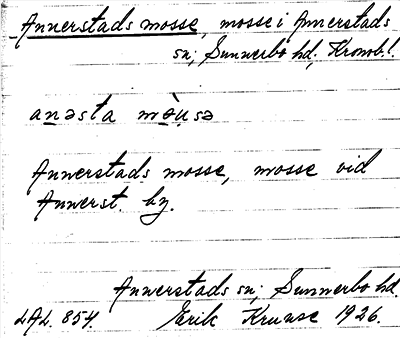 Annerstads mosse, mosse i Annerstads
sn; Sunnerbo hd; Kronb.l.
anəsta mòu̯sə
Annerstads mosse, mosse vid
Annerst. by.
Annerstads sn; Sunnerbo hd.
LAL. 854. Erik Kruuse 1926.